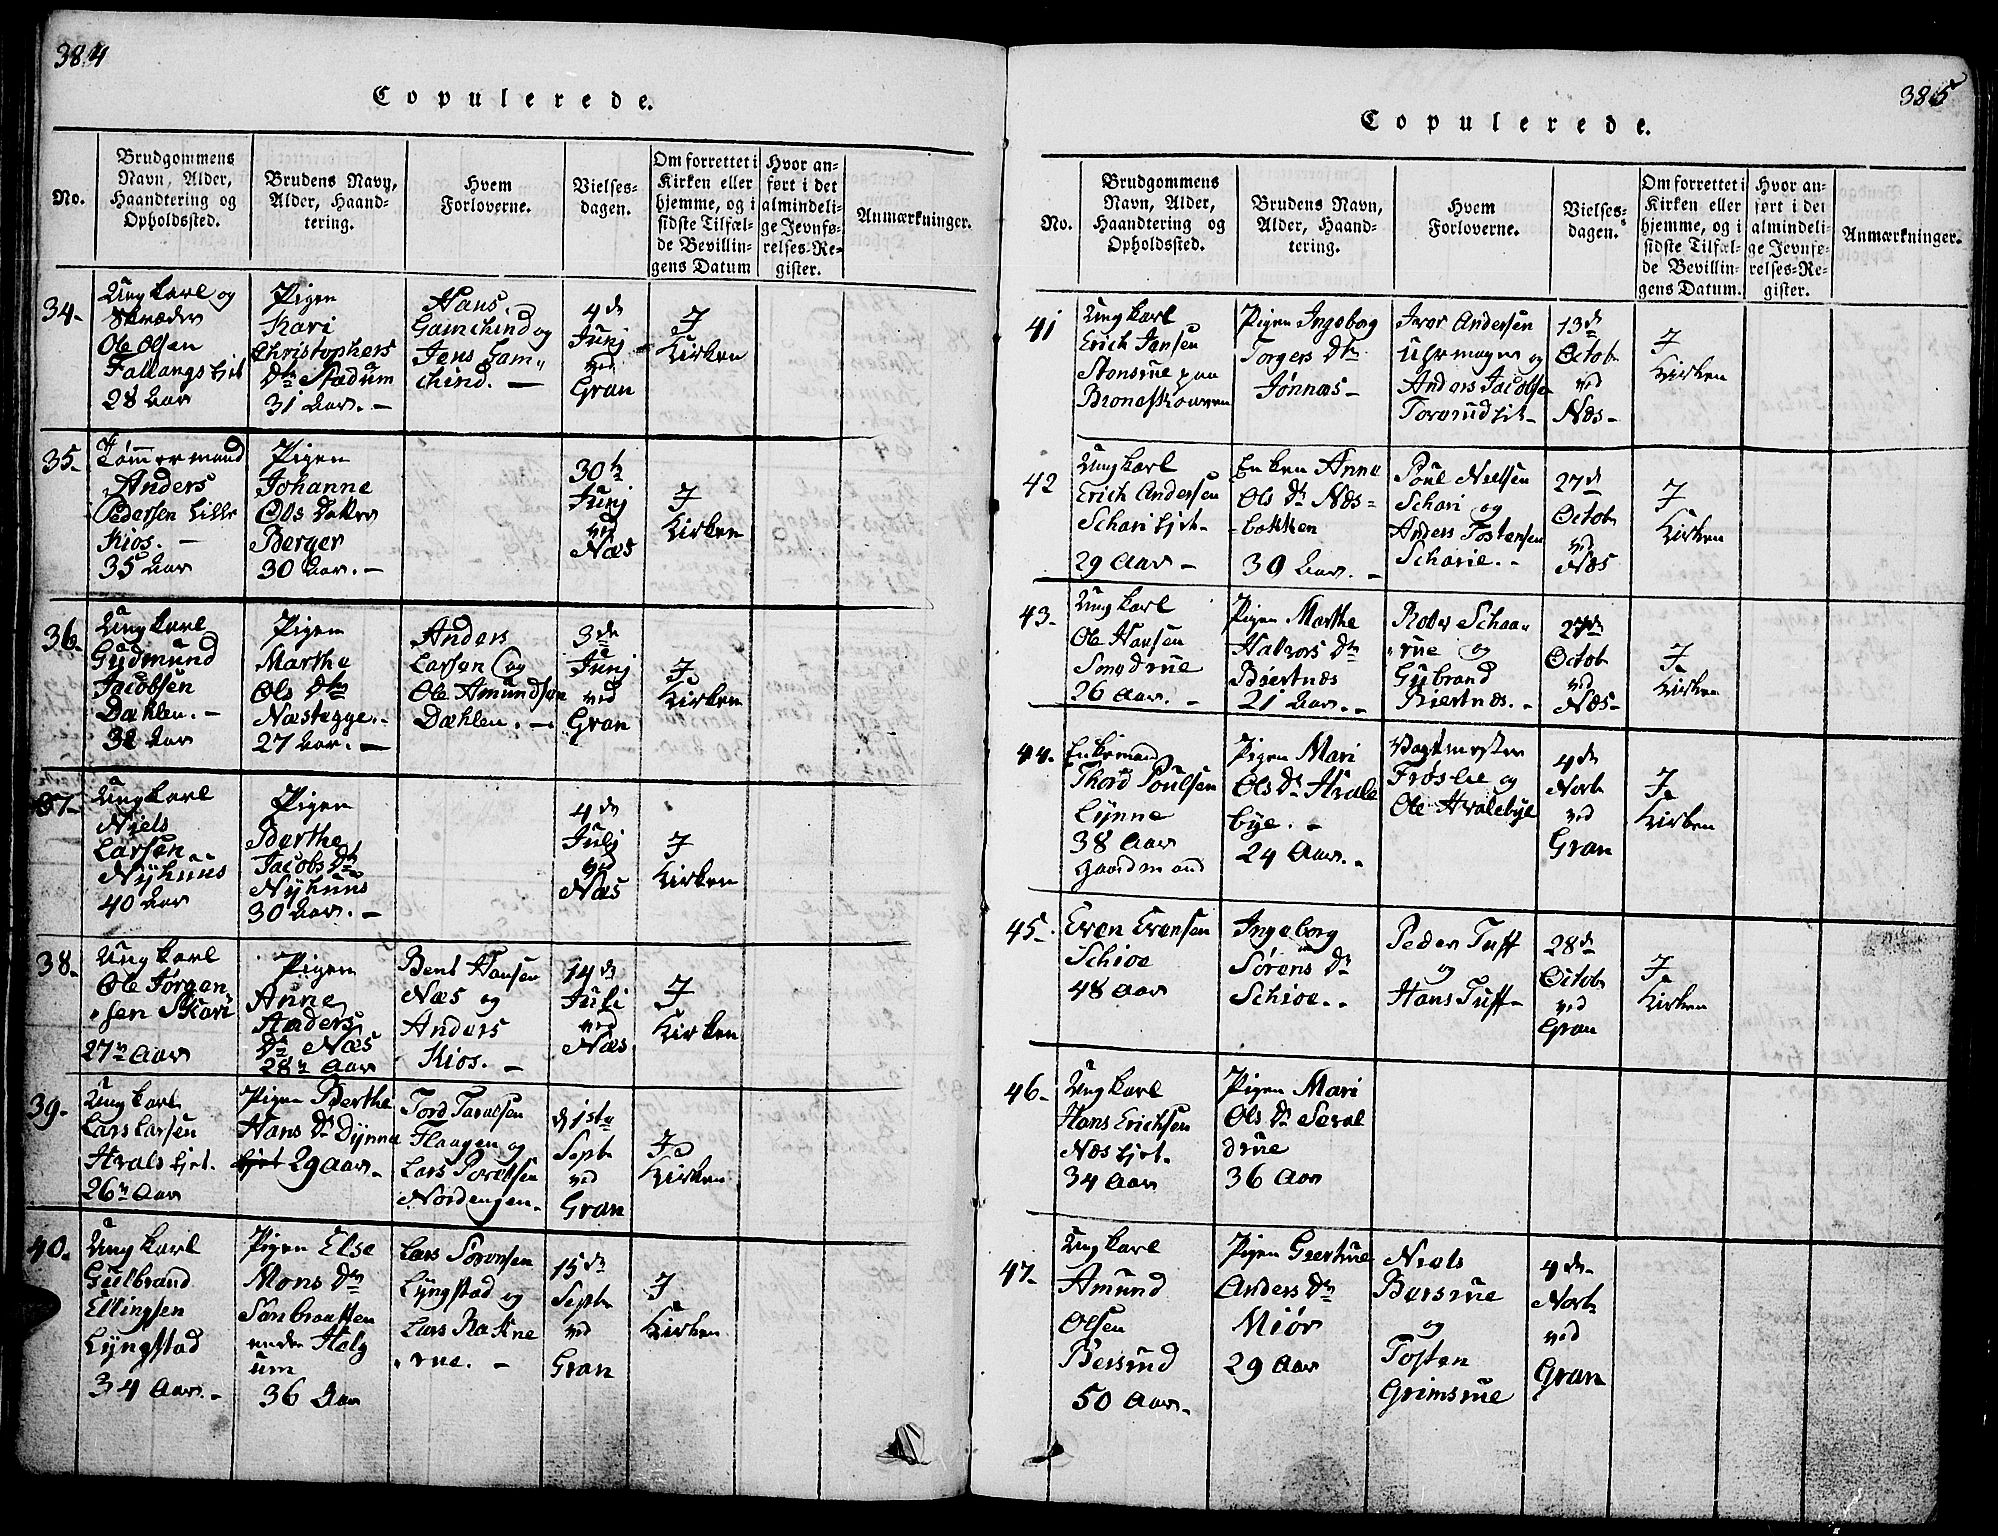 384
Copulerede.
No.
Brudgommens
Navn, Alder,
Haandtering og
Opholdssted.
Brudens Navn,
Alder, Haand-
tering.
Hvem
Forloverne.
Vielses-
dagen.
Om forrettet i
Kirken eller
hjemme, og i
sidste Tilfæl-
de Bevillin-
gens Datum
Hvor an-
ført i det
almindeli-
ge Jevnfø-
relses-Re-
gister.
Anmærkninger.
34.
Ungkarl og
Skræder
Ole Olsen
Fallangs Eiet
28 Aar
Pigen
Kari
Christophers
Dtr Stadum
31 Aar. -
Hans
Gamchind og
Jens Gam„
chind. -
4de
Junj
ved
Gran
I
Kirken
35-
Tømmermand
Anders
Pedersen Lille
Kios. -
35 Aar
Pigen
Johanne
Ols datter
Berger
30 Aar. -
30te
Junj
ved
Næs
I
Kirken
36-
Ungkarl
Gudmund
Jacobsen
Dæhlen. -
38 Aar
Pigen
Marthe
Ols Dtr
Næstegge. -
27 Aar. -
Anders
Larsen og
Ole Amundsen
Dæhlen. -
3de
Junj
ved
Gran
I
Kirken
37-
Ungkarl
Niels
Larsen
Nyhuus
40 Aar
Pigen
Berthe
Jacobs Dtr
Nyhuus
30 Aar. -
4de
Julj
ved
Næs
I
Kirken
38-
Ungkarl
Ole Jørgen„
„sen Skari
27 Aar
Pigen
Anne
Anders
Dtr Næs
28 Aar
Bent Hansen
Næs og
Anders
Kios. -
14de
Juli
ved
Næs
I
Kirken
39-
Ungkarl
Lars Larsen
Hvals Eiet.
26 Aar
Pigen Berthe
Hans Dtr Dynna
Eiet 29 Aar.
Tord Taralsen
Flaagen og
Lars Poulsen
Nordengen.
d 1ste
Septb
ved
Gran
I
Kirken
40.
Ungkarl
Gulbrand
Ellingsen
Lyngstad
34 Aar. -
Pigen Else
Mons Dtr
Sanbraatten
under Helg
um
36 Aar
Lars Sørensen
Lyngstad og
Lars Rakne
„rue. -
15de
Septb
ved
Gran
I
Kirken
385
Copulerede.
No.
Brudgommens
Navn, Alder,
Haandtering og
Opholdssted.
Brudens Navn,
Alder, Haand-
tering.
Hvem
Forloverne.
Vielses-
dagen.
Om forrettet i
Kirken eller
hjemme, og i
sidste Tilfæl-
de Bevillin-
gens Datum.
Hvor an-
ført i det
almindeli-
ge Jevnfø-
relses-Re-
gister.
Anmærkninger.
41
Ungkarl
Erich Jansen
Stensrue paa
Pigen Ingeborg
Torgers Dtr
Jønnæs -
Iver Andersen
Uhrmager og
Anders Jacobsen
13de
Octob
ved
Næs -
I
Kirken
42
Ungkarl
Erich Andersen
Schari Eiet -
29 Aar -
Enken Anne
Ols Dr Næs -
- bakken
39 Aar. -
Poul Nielsen
Schari og
Anders Tostensen
Scharie. -
27de
Octob
ved
Næs
I
Kirken
43.
Ungkarl
Ole Hansen
Smedrue
26 Aar. -
Pigen Marthe
Halvors Dtr
Biertnæs
21 Aar. -
Roler Schaa„
„rue og
Gubrand
Biertnæs. -
27de
Octob
ved
Næs -
I
Kirken
44.
Enkemand
Thord Poulsen
Lynne
38 Aar
Gaardmand
Pigen Mari
Ols Dr Hvale
bye. -
24 Aar. -
Vagtmester
Frøslie og
Ole Hvalebye
4de
Novb
ved
Gran
I
Kirken
45-
Even Evensen
Schioe
48 Aar
Ingeborg
Sørens Dr
Schioe. -
Peder Tuff
og
Hans Tuff -
28de
Octob
ved
Gran
I
Kirken
46-
Ungkarl
Hans Erichsen
Næs Eiet.
34 Aar
Pigen Mari
Ols Dr Seval
drue
36 Aar
47-
Ungkarl
Amund
Olsen
Bersrud
50 Aar. -
Pigen Geertrue
Anders Dtr
Miør
29 Aar
Niels
Bersrue
og
Tosten
Grimsrue
4de -
Novb
ved
Gran